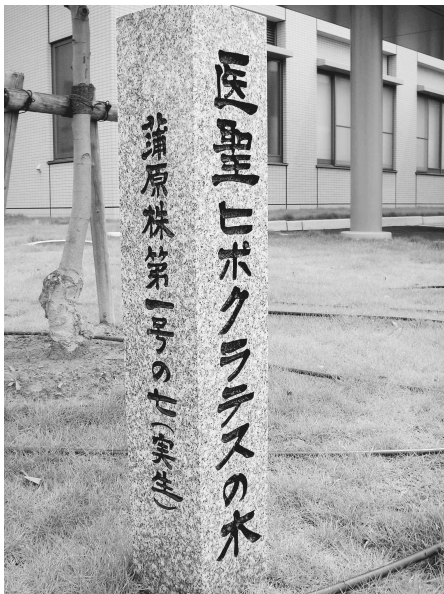 医聖ヒポクラテスの木
蒲原株第一号の七(実生)